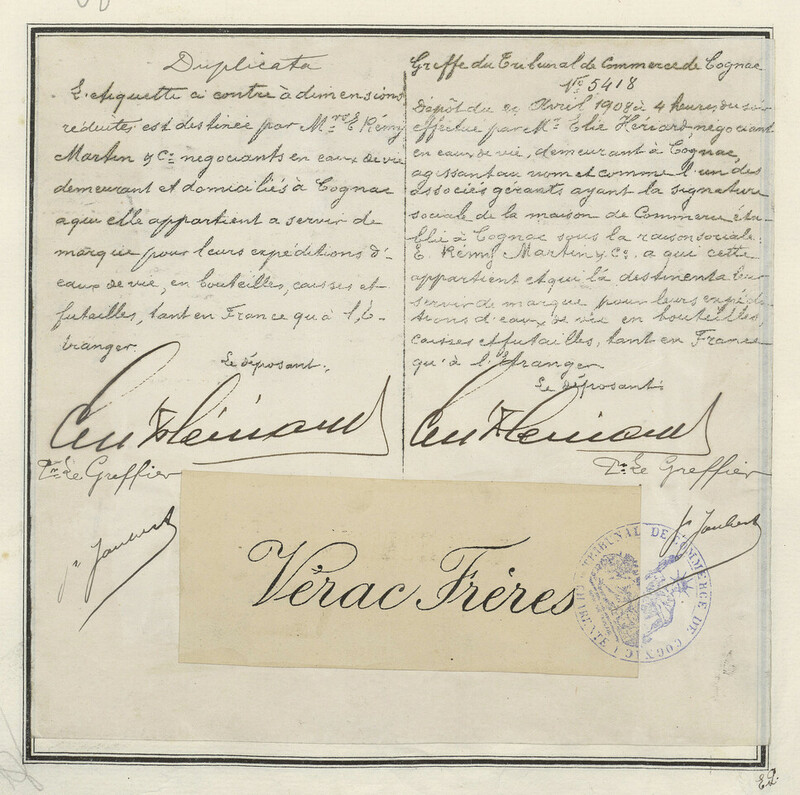 Duplicata
L'etiquette ci contre à dimensions
réduites est destinée par Mrs E. Rémy
Martin y Cie négociants en eaux de vie
demeurant et domiciliés à Cognac
a qui elle appartient a servir de
marque pour leurs expéditions d'
eaux de vie, en bouteilles, caisses et
futailles, tant en France qu'à l'É-
tranger.
Le déposant.
Pr Le Greffier
Greffe du Tribunal de Commerce de Cognac
No 5418
Dépôt du Avril 1908 à 4 heures du soir
effectué par Mr Elie Hériard, négociant
en eaux de vie, demeurant à Cognac,
agissant au nom et comme l'un des
associés gérants ayant la signature
sociale de la maison de Commerce éta-
blie à Cognac sous la raison sociale:
E. Remy Martin y Co. a qui cette
appartient et qui l'a destinent a leur
servir de marque pour leurs expédi-
tions d'eaux de vie en bouteilles,
caisses et futailles, tant en France
qu'à l'Etranger
Le déposant
Pr Le Greffier
Joubert
Joubert
Vérac Frères
TRIBUNAL DE COMMERCE DE COGNAC (CHARENTE)